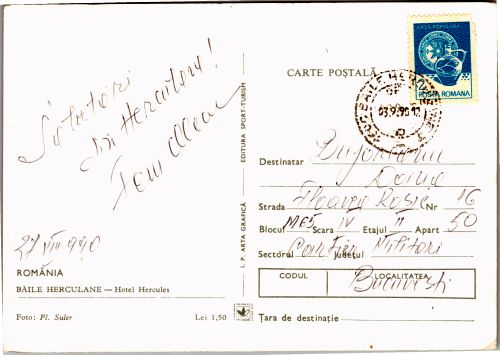 Salutări
din Herculane!
27 VIII 990
ROMÂNIA
BĂILE HERCULANE — Hotel Hercules
Foto: Fl. Suler
Lei 1,50
I. P. ARTA GRAFICĂ
EDITURA SPORT-TURISM
CARTE POȘTALĂ
ARTA POPULARA
2
POSTA ROMANA
BĂILE HERCULANE
Destinatar
Doina
Strada Floarea Roșie Nr 16
Blocul M65 Scara IV Etajul II Apart 50
Sectorul Județul
Cartier Militari
CODUL LOCALITATEA
București
Țara de destinație